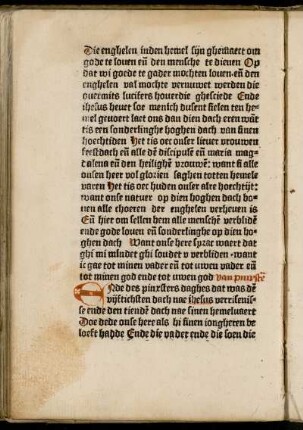 Die enghelen inden hemel sijn ghestaert om
gode te louen eñ den mensche te dienen Op
dat wi goede te gader mochten louen eñ den
enghelen val mochte vernuwet werden die
ouermits lucifers houerdie ghesciede Ende
ihesus heuet soe menich dusent sielen ten he-
mel geuoert laet ons dan dien dach eren wāt
tis een sonderlinghe hoghen dach van sinen
hoechtiden Het tis oec onser lieuer vrouwen
feestdach eñ alle dē discipulē eñ maria mag-
dalena eñ den heilighē vrouwē: want si alle
ousen heer vol glorien saghen totten hemele
varen Het tis oec huden onser alre hoechtijt:
want onse natuer op dien hoghen dach bo-
uen alle choeren der enghelen verheuen is
Eñ hier om sellen hem alle menschē verblidē
ende gode louen eñ sonderlinghe op dien ho-
ghen dach Want onse here sprac waert dat
ghi mi mindet ghi soudet v verbliden want
ic gae tot minen vader eñ tot uwen vader eñ
tot minen god ende tot uwen god van pinxstē
Ende des pinxsters daghes dat was dē
vijftichsten dach nae ihesus verrisenis-
se ende den tiendē dach nae sinen hemeluaert
Doe dede onse here als hi sinen iongheren be
loeft hadde Ende die vader ende die soen die